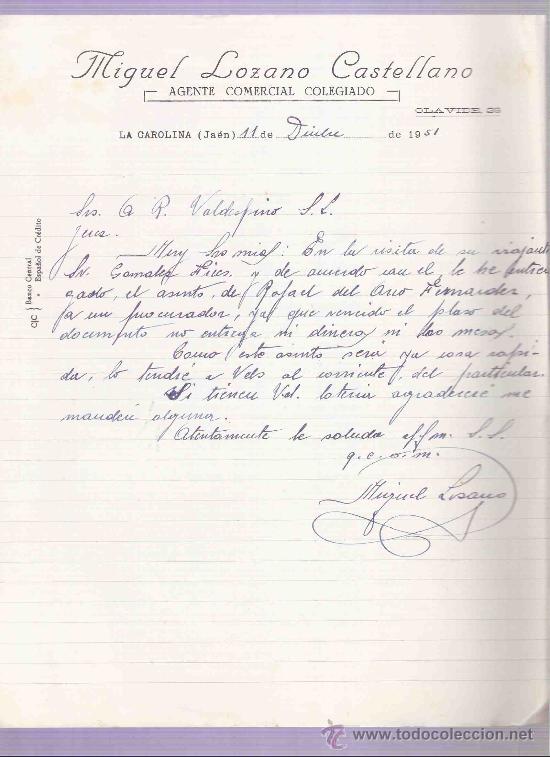 Miguel Lozano Castellano
AGENTE COMERCIAL COLEGIADO
OLAVIDE 38
LA CAROLINA (Jaén) 11 de Dicbre de 1951
c/c Banco Central
Español de Crédito
Srs. A R. Valdespino S.L.
Jerez.
Muy Srs mios: En la visita de su viajante
Sr. Gonzalez y de acuerdo con el, le he entre
gado, el asunto, de Rafael del Amo Fernandez,
a un procurador, ya que vencido el plazo del
documento no entrega ni dinero ni las mesas.
Como este asunto será ya cosa rapi-
da, lo tendré a Vds al corriente, del particular.
Si tienen Vd. loteria agradeceré me
manden alguna.
Atentamente le saluda affm. S. S.
q. e. s. m.
Miguel Lozano
todocoleccion
www.todocoleccion.net